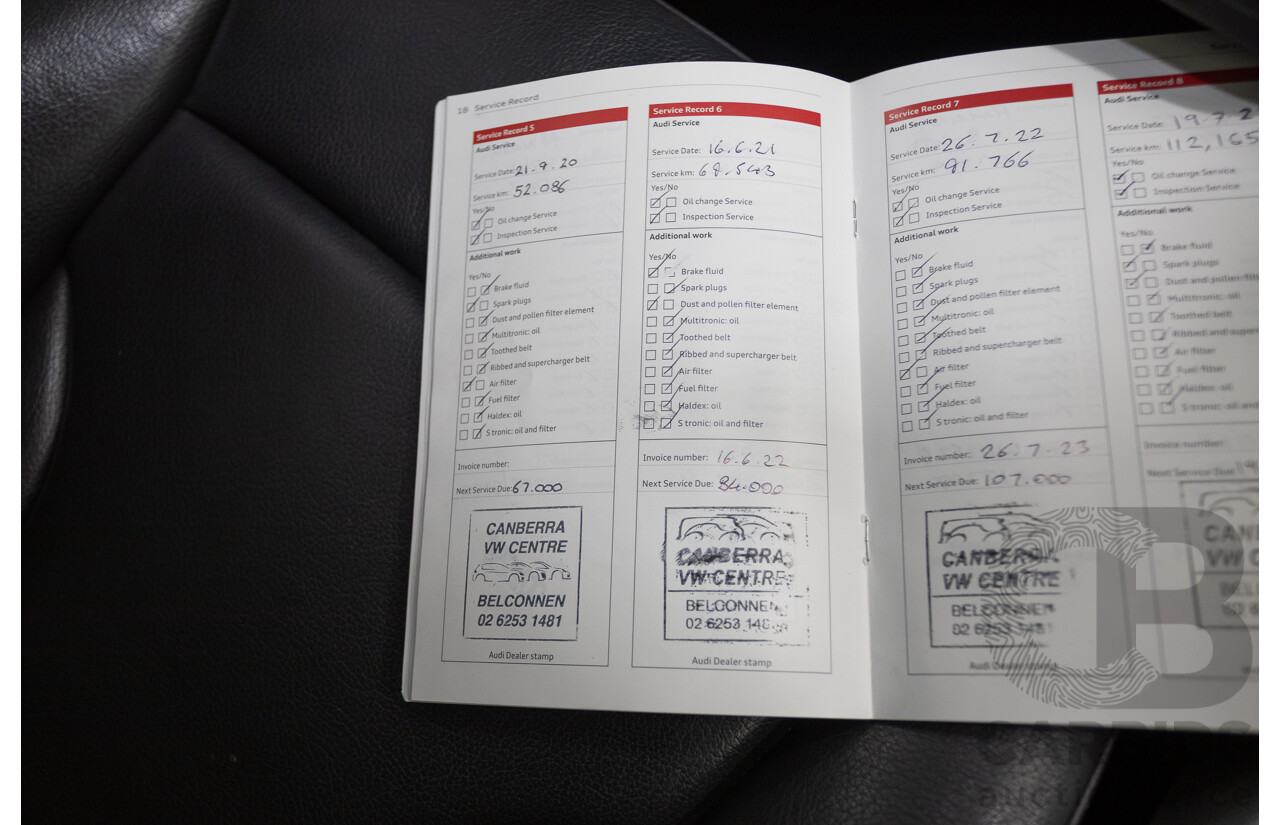 18 Service Record
Service Record 5
Audi Service
Service Date: 21.9.20
Service km: 52.086
Yes/No
Oil change Service
Inspection Service
Additional work
Yes/No
Brake fluid
Spark plugs
Dust and pollen filter element
Multitronic: oil
Toothed belt
Ribbed and supercharger belt
Air filter
Fuel filter
Haldex: oil
S tronic: oil and filter
Invoice number:
Next Service Due: 67.000
CANBERRA
VW CENTRE
BELCONNEN
02 6253 1481
Audi Dealer stamp
Service Record 6
Audi Service
Service Date: 16.6.21
Service km: 68.543
Yes/No
Oil change Service
Inspection Service
Additional work
Yes/No
Brake fluid
Spark plugs
Dust and pollen filter element
Multitronic: oil
Toothed belt
Ribbed and supercharger belt
Air filter
Fuel filter
Haldex: oil
S tronic: oil and filter
Invoice number: 16.6.22
Next Service Due: 84.000
CANBERRA
VW CENTRE
BELCONNEN
02 6253 148
Audi Dealer stamp
Service Record 7
Audi Service
Service Date: 26.7.22
Service km: 91.766
Yes/No
Oil change Service
Inspection Service
Additional work
Yes/No
Brake fluid
Spark plugs
Dust and pollen filter element
Multitronic: oil
Toothed belt
Ribbed and supercharger belt
Air filter
Fuel filter
Haldex: oil
S tronic: oil and filter
Invoice number: 26.7.23
Next Service Due: 107.000
CANBERRA
VW CENTRE
BELCONNEN
02 6253 1481
Audi Dealer stamp
Service Record 8
Audi Service
Service Date: 19.7.2
Service km: 112,165
Yes/No
Oil change Service
Inspection Service
Additional work
Yes/No
Brake fluid
Spark plugs
Dust and pollen filter
Multitronic: oil
Toothed belt
Ribbed and super
Air filter
Fuel filter
Haldex: oil
S tronic: oil and
Invoice number:
Next Service Due:
CAN
VW C